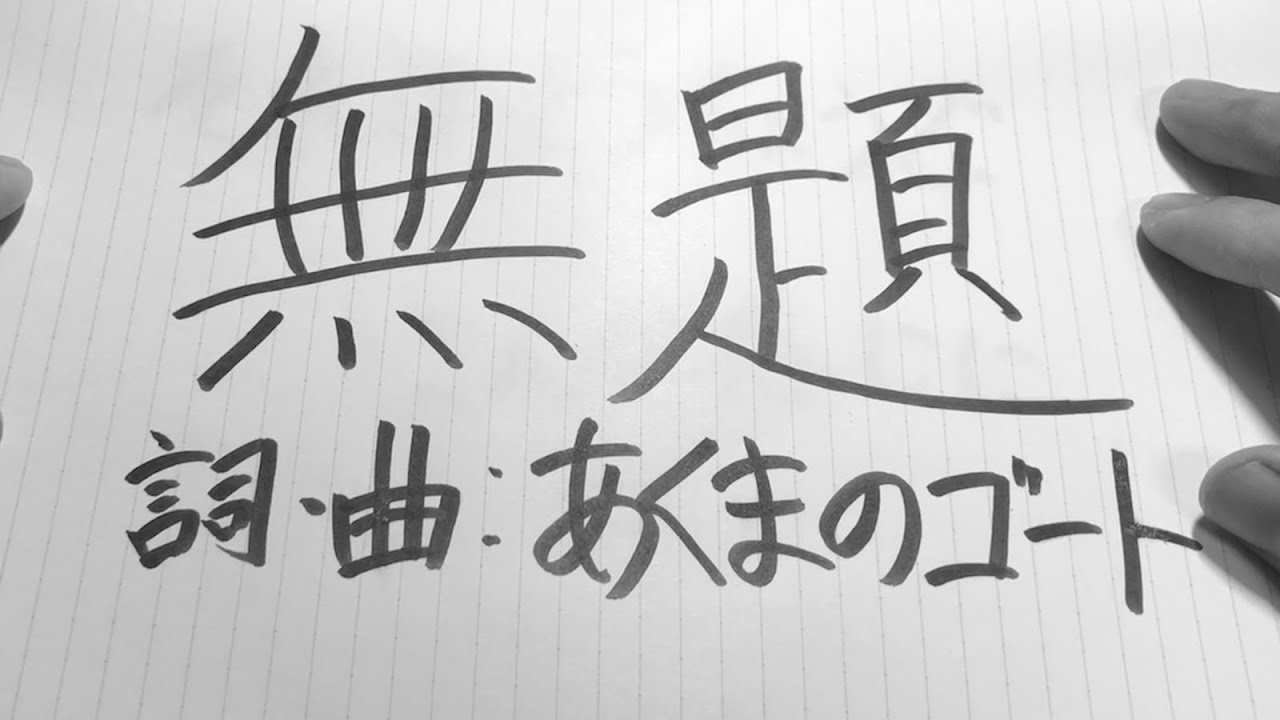 無題
詞・曲:あくまのゴート